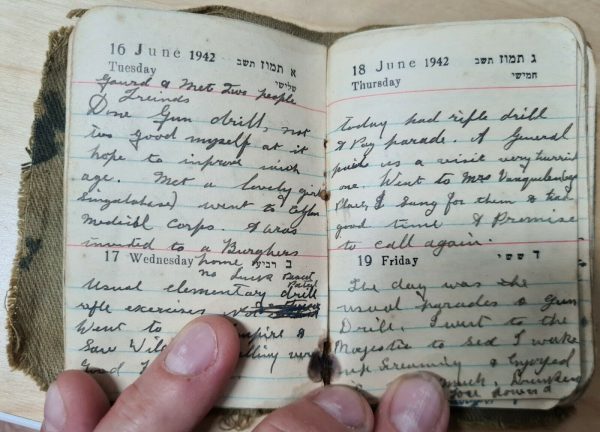 16 June 1942 א תמוז תשב
Tuesday שלישי
Gaurd & Met Two people
& Freinds
Done Gun drill, not
too good myself at it
hope to improve with
age. Met a lovely girl
went to
Medicibl Corps. & was
invited to a Burghers
17 Wednesday ב רביעי
home
no luck
Usual elementary drill
rifle exercises
Went to
Saw very
Good
18 June 1942 ג תמוז תשב
Thursday חמישי
Today had rifle drill
& Pay parade. A General
paid us a visit very hurried
one. Went to Mrs
Place, I Sang for them & had
good time & Promise
to call again.
19 Friday ד ששי
The day was the
usual parades & gun
Drill. I went to the
Majestic to see I wake
up Screaming & Enjoyed
much.
down